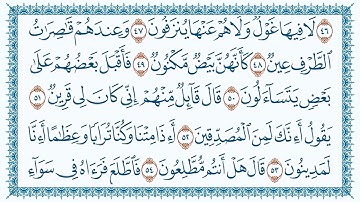 ٤٦ لَا فِيهَا غَوْلٌ وَلَا هُمْ عَنْهَا يُنزَفُونَ ٤٧ وَعِندَهُمْ قَٰصِرَٰتُ
ٱلطَّرْفِ عِينٌ ٤٨ كَأَنَّهُنَّ بَيْضٌ مَّكْنُونٌ ٤٩ فَأَقْبَلَ بَعْضُهُمْ عَلَىٰ
بَعْضٍ يَتَسَآءَلُونَ ٥٠ قَالَ قَآئِلٌ مِّنْهُمْ إِنِّى كَانَ لِى قَرِينٌ ٥١
يَقُولُ أَءِنَّكَ لَمِنَ ٱلْمُصَدِّقِينَ ٥٢ أَءِذَا مِتْنَا وَكُنَّا تُرَابًا وَعِظَٰمًا أَءِنَّا
لَمَدِينُونَ ٥٣ قَالَ هَلْ أَنتُم مُّطَّلِعُونَ ٥٤ فَٱطَّلَعَ فَرَءَاهُ فِى سَوَآءِ